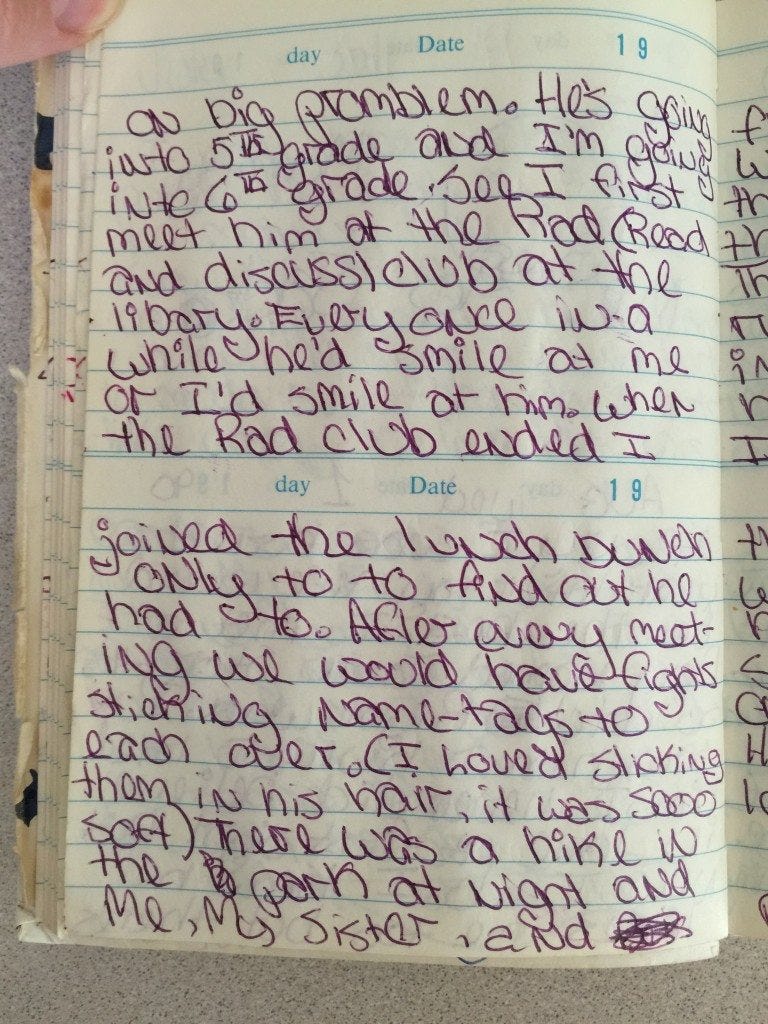 day Date 19
on big promblem. He's going
into 5th grade and I'm going
into 6th grade. See I first
meet him at the Rad (Read
and discuss) club at the
libary. Every once in a
while he'd smile at me
or I'd smile at him. When
the Rad club ended I
day Date 19
joined the lunch bunch
only to to find out he
had to. After every meet-
ing we would have fights
sticking name-tags to
each over. (I loved sticking
them in his hair, it was sooo
soft) There was a hike in
the park at night and
Me, My sister, and